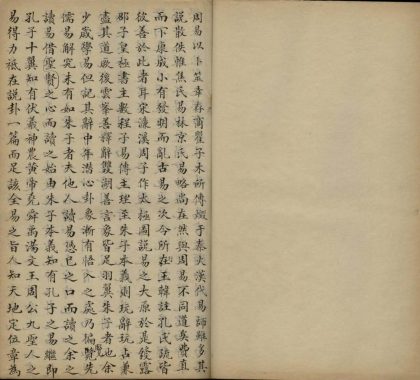 周易以卜筮幸存商瞿子木所傳燬于秦火漢代易師雖多其
說散佚惟焦氏易林京氏易略尚在然與周易不同道矣費直
而下康成小有發明而亂古易之次今所在王韓註孔氏疏皆
彼善於此者耳宋濂溪周子作太極圖說易之大原於是發露
邵子皇極書主數程子易傳主理至朱子本義則玩辭玩占兼
盡其道厥後雲峯善釋辭雙湖善言象皆足羽翼朱子者也余
少歲學易但記其辭中年潛心卦象漸有悟入之處乃徧覽先
儒易解究未有如朱子者夫他人讀易憑己之口而讀之余之
讀易借聖賢之心而讀之始由朱子本義知有孔子之易繼即
孔子十翼知有伏羲神農黃帝堯舜禹湯文王周公九聖人之
易得力祇在說卦一篇而足該全易之旨人知天地定位章為